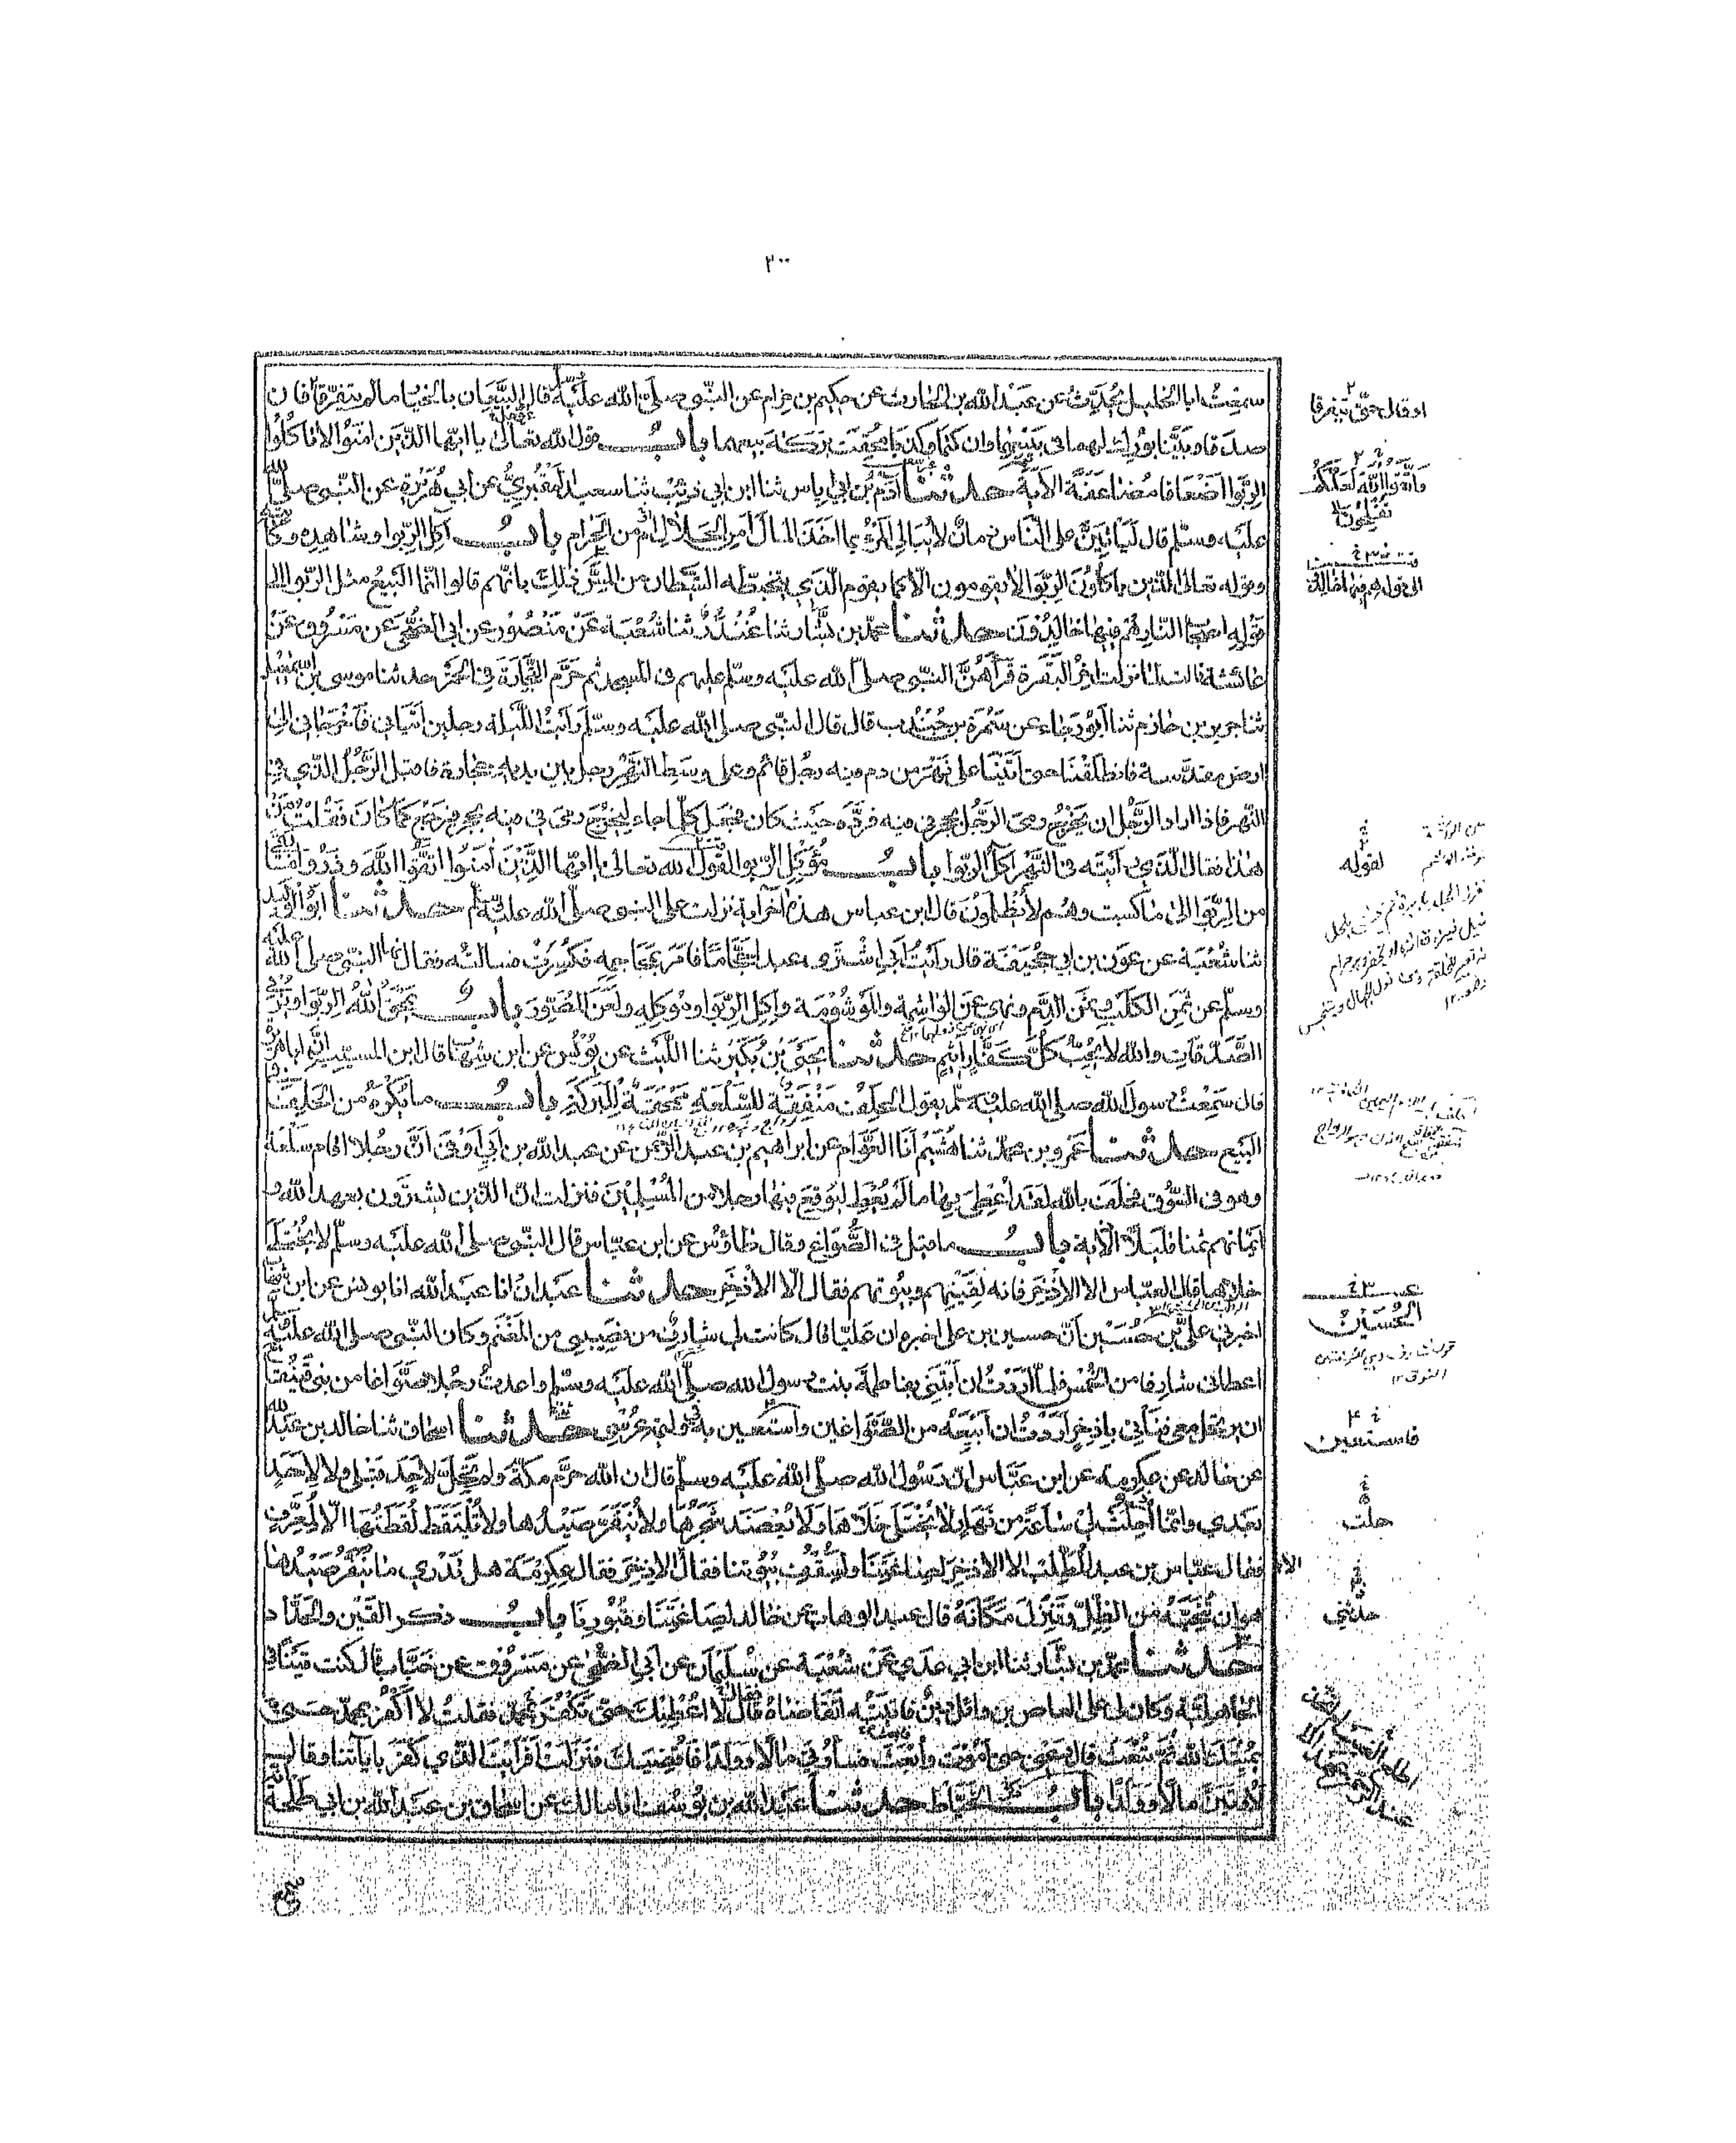 ٢٠٠
سمعت ابا الخليل يحدث عن عبد الله بن الحارث عن حكيم بن حزام عن النبي صلى الله عليه قال البيعان بالخيار ما لم يتفرقا فان
صدقا وبينا بورك لهما في بيعهما وان كتما وكذبا محقت بركة بيعهما باب قول الله تعالى يا ايها الذين امنوا لا تاكلوا
الربوا اضعافا مضاعفة الآية حدثنا آدم بن ابي اياس ثنا ابن ابي ذئب ثنا سعيد المقبري عن ابي هريرة عن النبي صلى الله
عليه وسلم قال لياتين على الناس زمان لا يبالي المرء بما اخذ المال أمن الحلال ام من الحرام باب آكل الربوا وشاهده وكاتبه
وقوله تعالى الذين ياكلون الربوا لا يقومون الا كما يقوم الذي يتخبطه الشيطان من المس ذلك بانهم قالوا انما البيع مثل الربوا الى
قوله اصحاب النار هم فيها خالدون حدثنا محمد بن بشار ثنا غندر ثنا شعبة عن منصور عن ابي الضحى عن مسروق عن
عائشة قالت لما نزلت آخر البقرة قرأهن النبي صلى الله عليه وسلم عليهم في المسجد ثم حرم التجارة في الخمر حدثنا موسى بن اسمعيل
ثنا جرير بن حازم ثنا ابو رجاء عن سمرة بن جندب قال قال النبي صلى الله عليه وسلم رأيت الليلة رجلين اتياني فاخرجاني الى
ارض مقدسة فانطلقنا حتى اتينا على نهر من دم فيه رجل قائم وعلى وسط النهر رجل بين يديه حجارة فاقبل الرجل الذي في
النهر فاذا اراد الرجل ان يخرج رمى الرجل بحجر في فيه فرده حيث كان فجعل كلما جاء ليخرج رمى في فيه بحجر فيرجع كما كان فقلت من
هذا فقال الذي رأيته في النهر آكل الربوا باب مؤكل الربوا لقول الله تعالى يا ايها الذين امنوا اتقوا الله وذروا ما بقي
من الربوا الى ما كسبت وهم لا يظلمون قال ابن عباس هذه آخر آية نزلت على النبي صلى الله عليه وسلم حدثنا ابو الوليد
ثنا شعبة عن عون بن ابي جحيفة قال رأيت ابي اشترى عبدا حجاما فامر بمحاجمه فكسرت فسالته فقال نهى النبي صلى الله عليه
وسلم عن ثمن الكلب وثمن الدم ونهى عن الواشمة والموشومة وآكل الربوا وموكله ولعن المصور باب يمحق الله الربوا ويربي
الصدقات والله لا يحب كل كفار اثيم حدثنا يحيى بن بكير ثنا الليث عن يونس عن ابن شهاب قال ابن المسيب ان ابا هريرة
قال سمعت رسول الله صلى الله عليه وسلم يقول الحلف منفقة للسلعة ممحقة للبركة باب ما يكره من الحلف في
البيع حدثنا عمرو بن محمد ثنا هشيم انا العوام عن ابراهيم بن عبد الرحمن عن عبد الله بن ابي اوفى ان رجلا اقام سلعة
وهو في السوق فحلف بالله لقد اعطي بها ما لم يعط ليوقع فيها رجلا من المسلمين فنزلت ان الذين يشترون بعهد الله و
ايمانهم ثمنا قليلا الآية باب ما قيل في الصواغ وقال طاؤس عن ابن عباس قال النبي صلى الله عليه وسلم لا يختلى
خلاها قال العباس الا الاذخر فانه لقينهم وبيوتهم فقال الا الاذخر حدثنا عبدان انا عبد الله انا يونس عن ابن شهاب
اخبرني علي بن حسين ان حسين بن علي اخبره ان عليا قال كانت لي شارف من نصيبي من المغنم وكان النبي صلى الله عليه وسلم
اعطاني شارفا من الخمس فلما اردت ان ابتني بفاطمة بنت رسول الله صلى الله عليه وسلم واعدت رجلا صواغا من بني قينقاع
ان يرتحل معي فنأتي باذخر اردت ان ابيعه من الصواغين واستعين به في وليمة عرسي حدثنا اسحاق ثنا خالد بن عبد الله
عن خالد عن عكرمة عن ابن عباس ان رسول الله صلى الله عليه وسلم قال ان الله حرم مكة ولم تحل لاحد قبلي ولا لاحد
بعدي وانما احلت لي ساعة من نهار لا يختلى خلاها ولا يعضد شجرها ولا ينفر صيدها ولا تلتقط لقطتها الا لمعرف
فقال عباس بن عبد المطلب الا الاذخر لصاغتنا ولسقف بيوتنا فقال الا الاذخر فقال عكرمة هل تدري ما ينفر صيدها
هو ان تنحيه من الظل وتنزل مكانه قال عبد الوهاب عن خالد لصاغتنا وقبورنا باب ذكر القين والحداد
حدثنا محمد بن بشار ثنا ابن ابي عدي عن شعبة عن سليمان عن ابي الضحى عن مسروق عن خباب قال كنت قينا في
الجاهلية وكان لي على العاص بن وائل دين فاتيته اتقاضاه قال لا اعطيك حتى تكفر بمحمد فقلت لا اكفر بمحمد حتى
يميتك الله ثم تبعث قال دعني حتى اموت وابعث فساوتى مالا وولدا فاقضيك فنزلت افرأيت الذي كفر باياتنا وقال
لاوتين مالا وولدا باب الخياط حدثنا عبد الله بن يوسف انا مالك عن اسحاق بن عبد الله بن ابي طلحة
او قال حتى يتفرقا
واتقوا الله لعلكم
تفلحون
الى قوله هم فيها خالدون
لقوله
الحسين
فاستعين
حلت
حدثني